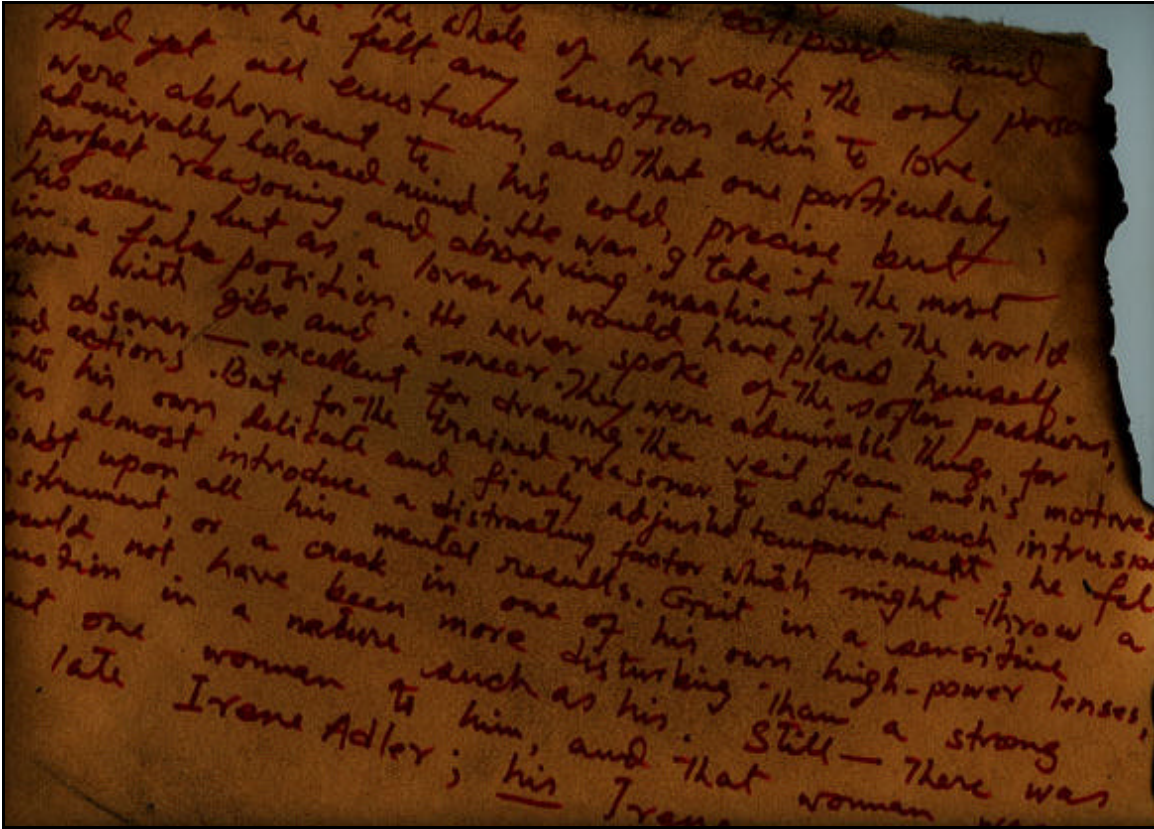 eclipsed and
the whole of her sex, the only perso
he felt any emotion akin to love.
And yet all emotions, and that one particularly
were abhorrent to his cold, precise but
admirably balanced mind. He was, I take it the most
perfect reasoning and observing machine that the world
has seen, but as a lover he would have placed himself
in a false position. He never spoke of the softer passions,
save with gibe and a sneer. They were admirable things, for
the observer — excellent for drawing the veil from men's motives
and actions. But for the trained reasoner to admit such intrusion
into his own delicate and finely adjusted temperament, he fel
was almost introduce a distracting factor which might throw a
oubt upon all his mental results. Grit in a sensitive
nstrument, or a crack in one of his own high-power lenses,
ould not have been more disturbing than a strong
motion in a nature such as his. Still — there was
ut one woman to him, and that woman
late Irene Adler; his Irene